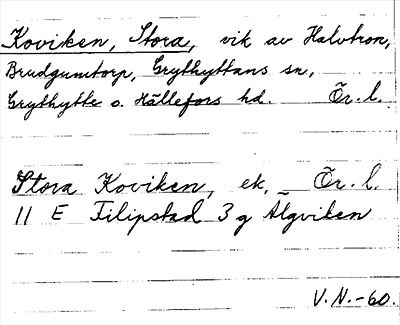 Koviken, Stora, vik av Halvtron,
Brudgumtorp, Grythyttans sn,
Grythytte o. Hällefors hd. Ör. l.
Stora Koviken, ek, – Ör. l.
11 E Filipstad 3 g Älgviken
V. N. -60.